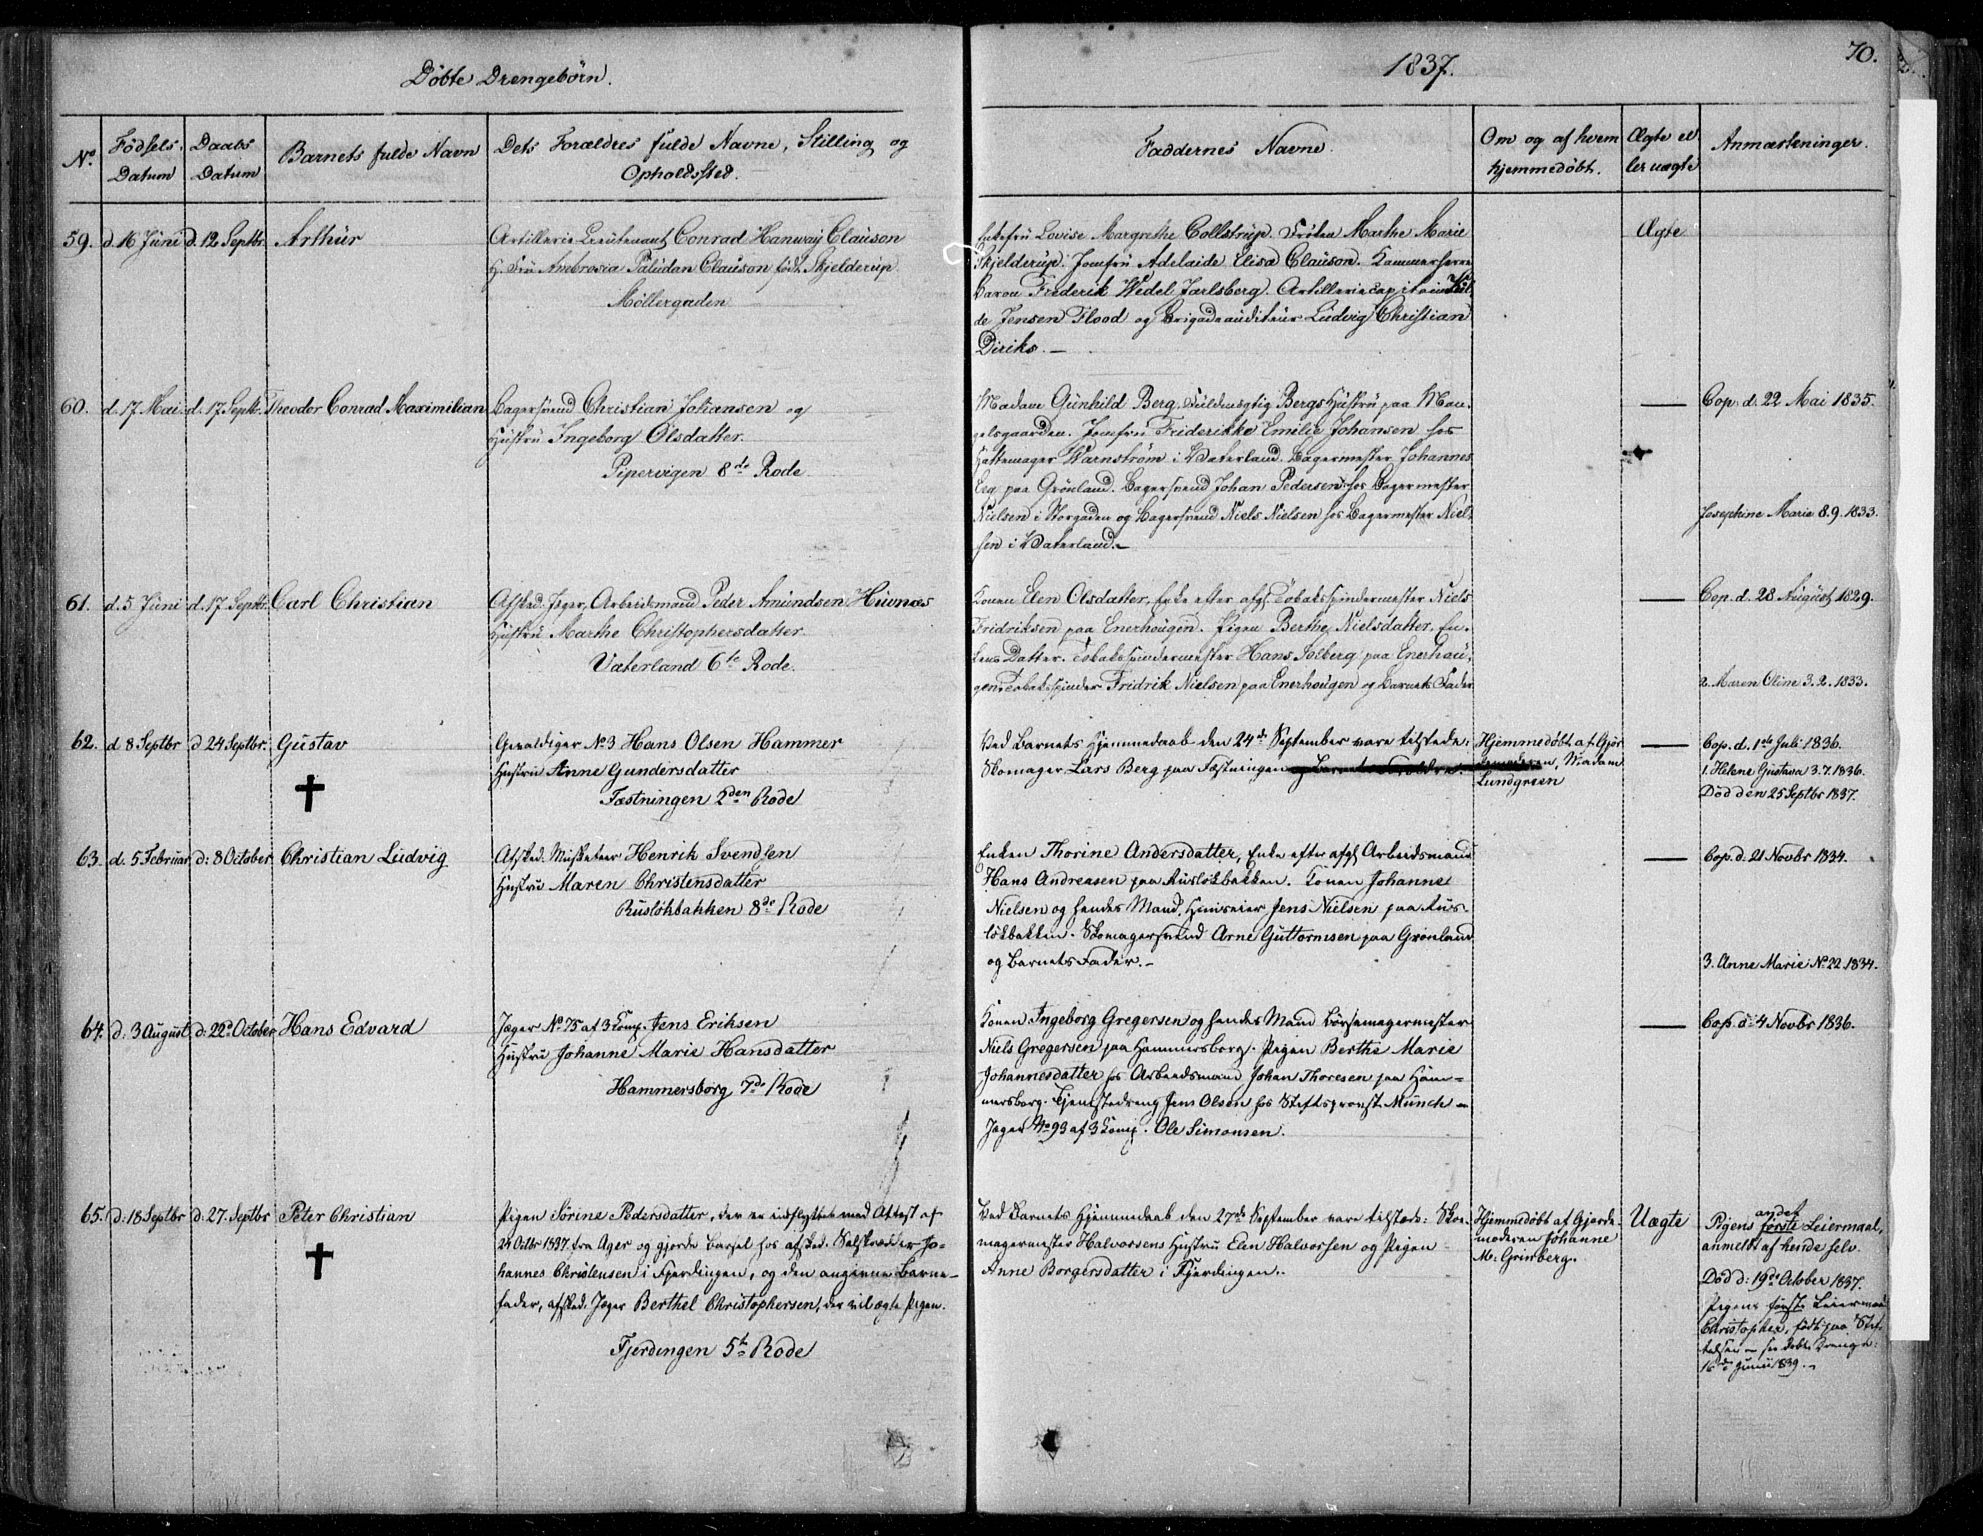 Döbte Drengebörn.
1837.
70.
No.
Födsels Datum
Daabs Datum
Barnets fulde Navn
Dets Forældres fulde Navne, Stilling og
Opholdssted.
Faddernes Navne.
Om og af hvem
hjemmedøbt.
Ægte el
ler uægte
Anmærkninger.
59. d. 16 Juni d. 12 Septbr. Arthur
Artillerie Lieutenant Conrad Hanway Clauson
H. Fru Ambrosia Paludan Clauson födt Skjelderup
Möllergaden
Enkefru Lovise Margrethe Collstrup. Fröken Marthe Marie
Skjelderup. Jomfru Adelaide Elisa Clauson. Kammerherre
Baron Frederik Wedel Jarlsberg. Artilleriecapitain
de Jensen Flood og Brigadeauditeur Ludvig Christian
Diriks. —
Ægte
60. d. 17 Mai. d. 17 Septbr. Theodor Conrad Maximilian
Bagersvend Christian Johansen og
Hustru Ingeborg Olsdatter.
Pipervigen 8de Rode
Madam Gunhild Berg, Fuldmægtig Bergs Hustru paa Man-
gelsgaarden. Jomfru Friderikke Emilie Johansen hos
Hattemager Warnström i Vaterland. Bagermester Johannes
Eeg paa Grönland. Bagersvend Johan Pedersen hos Bagermester
Nielsen i Storgaden og Bagersvend Niels Nielsen hos Bagermester Niel-
sen i Vaterland. —
—
Cop. d. 22 Mai 1835.
Josephine Marie 8.9.1833.
61. d. 5 Juni d. 17 Septbr. Carl Christian
Afsked. Jæger, Arbeidsmand Peder Amundsen Huvnæs
Hustru Marthe Christophersdatter.
Vaterland 6te Rode.
Konen Elen Olsdatter, Enke efter afg. Tobakspindermester Niels
Fridriksen paa Enerhougen. Pigen Berthe Nielsdatter, En-
kens Datter. Tobakspindermester Hans Solberg paa Enerhou-
gen. Tobakspinder Fridrik Nielsen paa Enerhougen og Barnets Fader
—
Cop. d. 28 August 1829.
2. Maren Oline 3.2.1833.
62. d 8 Septbr d 24 Septbr. Gustav
Gevaldiger No 3 Hans Olsen Hammer
Hustru Anne Gundersdatter
Fæstningen 2den Rode
Ved Barnets Hjemmedaab den 24de September vare tilstede:
Skomager Lars Berg paa Fæstningen og Barnets Forældre.
Hjemmedöbt af Gjor
demoderen, Madam
Lundgreen
—
Cop. d. 1ste Juli 1836.
1. Helene Gustava 3.7.1836.
Död den 25 Septbr 1837.
63. d. 5 Februar d: 8 October Christian Ludvig
Afsked. Musketeer Henrik Svendsen
Hustru Maren Christensdatter
Ruslökbakken 8de Rode
Enken Thorine Andersdatter, Enke efter afg. Arbeidsmand
Hans Andreasen paa Ruslökbakken. Konen Johanne
Nielsen og hendes Mand, Huuseier Jens Nielsen paa Rus-
lökbakken. Skomagersvend Arne Guttormsen paa Grönland
og Barnets Fader. —
—
Cop. d. 21 Novbr 1834.
3. Anne Marie No 22 1834.
64. d: 3 August d: 22de October Hans Edvard
Jæger No 75 af 3 Comp. Jens Eriksen
Hustru Johanne Marie Hansdatter
Hammersborg 7de Rode
Konen Ingeborg Gregersen og hendes Mand Börsemagermester
Niels Gregersen paa Hammersborg. Pigen Berthe Marie
Johannesdatter hos Arbeidsmand Johan Thoresen paa Ham-
mersborg. Tjenestedreng Jens Olsen hos Stiftsprovst Munch —
Jæger No 93 af 3 Comp. Ole Simonsen.
—
Cop. d: 4 Novbr 1836.
65. d: 18 Septbr d: 27. Septbr Peter Christian
Pigen Sörine Pedersdatter, der er indflyttet med Attest af
24 Octbr 1837 fra Ager og gjorde Barsel hos afsked. Salskrædder Jo-
hannes Christensen i Fjerdingen, og den angivne Barne-
fader, afsked. Jæger Berthel Christophersen, der vil ægte Pigen.
Fjerdingen 5te Rode
Ved Barnets Hjemmedaab den 27de September vare tilstede: Sko-
magermester Halvorsens Hustru Elen Halvorsen og Pigen
Anne Borgersdatter i Fjerdingen.
Hjemmedöbt af Gjorde-
moderen Johanne
M. Grinberg.
Uægte
andet
Pigens förste Leiermaal,
anmeldt af hende selv.
Död d: 19de October 1837.
Pigens förste Leiermaal
Christopher, födt paa Stif-
telsen — see döbte Drenge:
16de Junii 1839. —